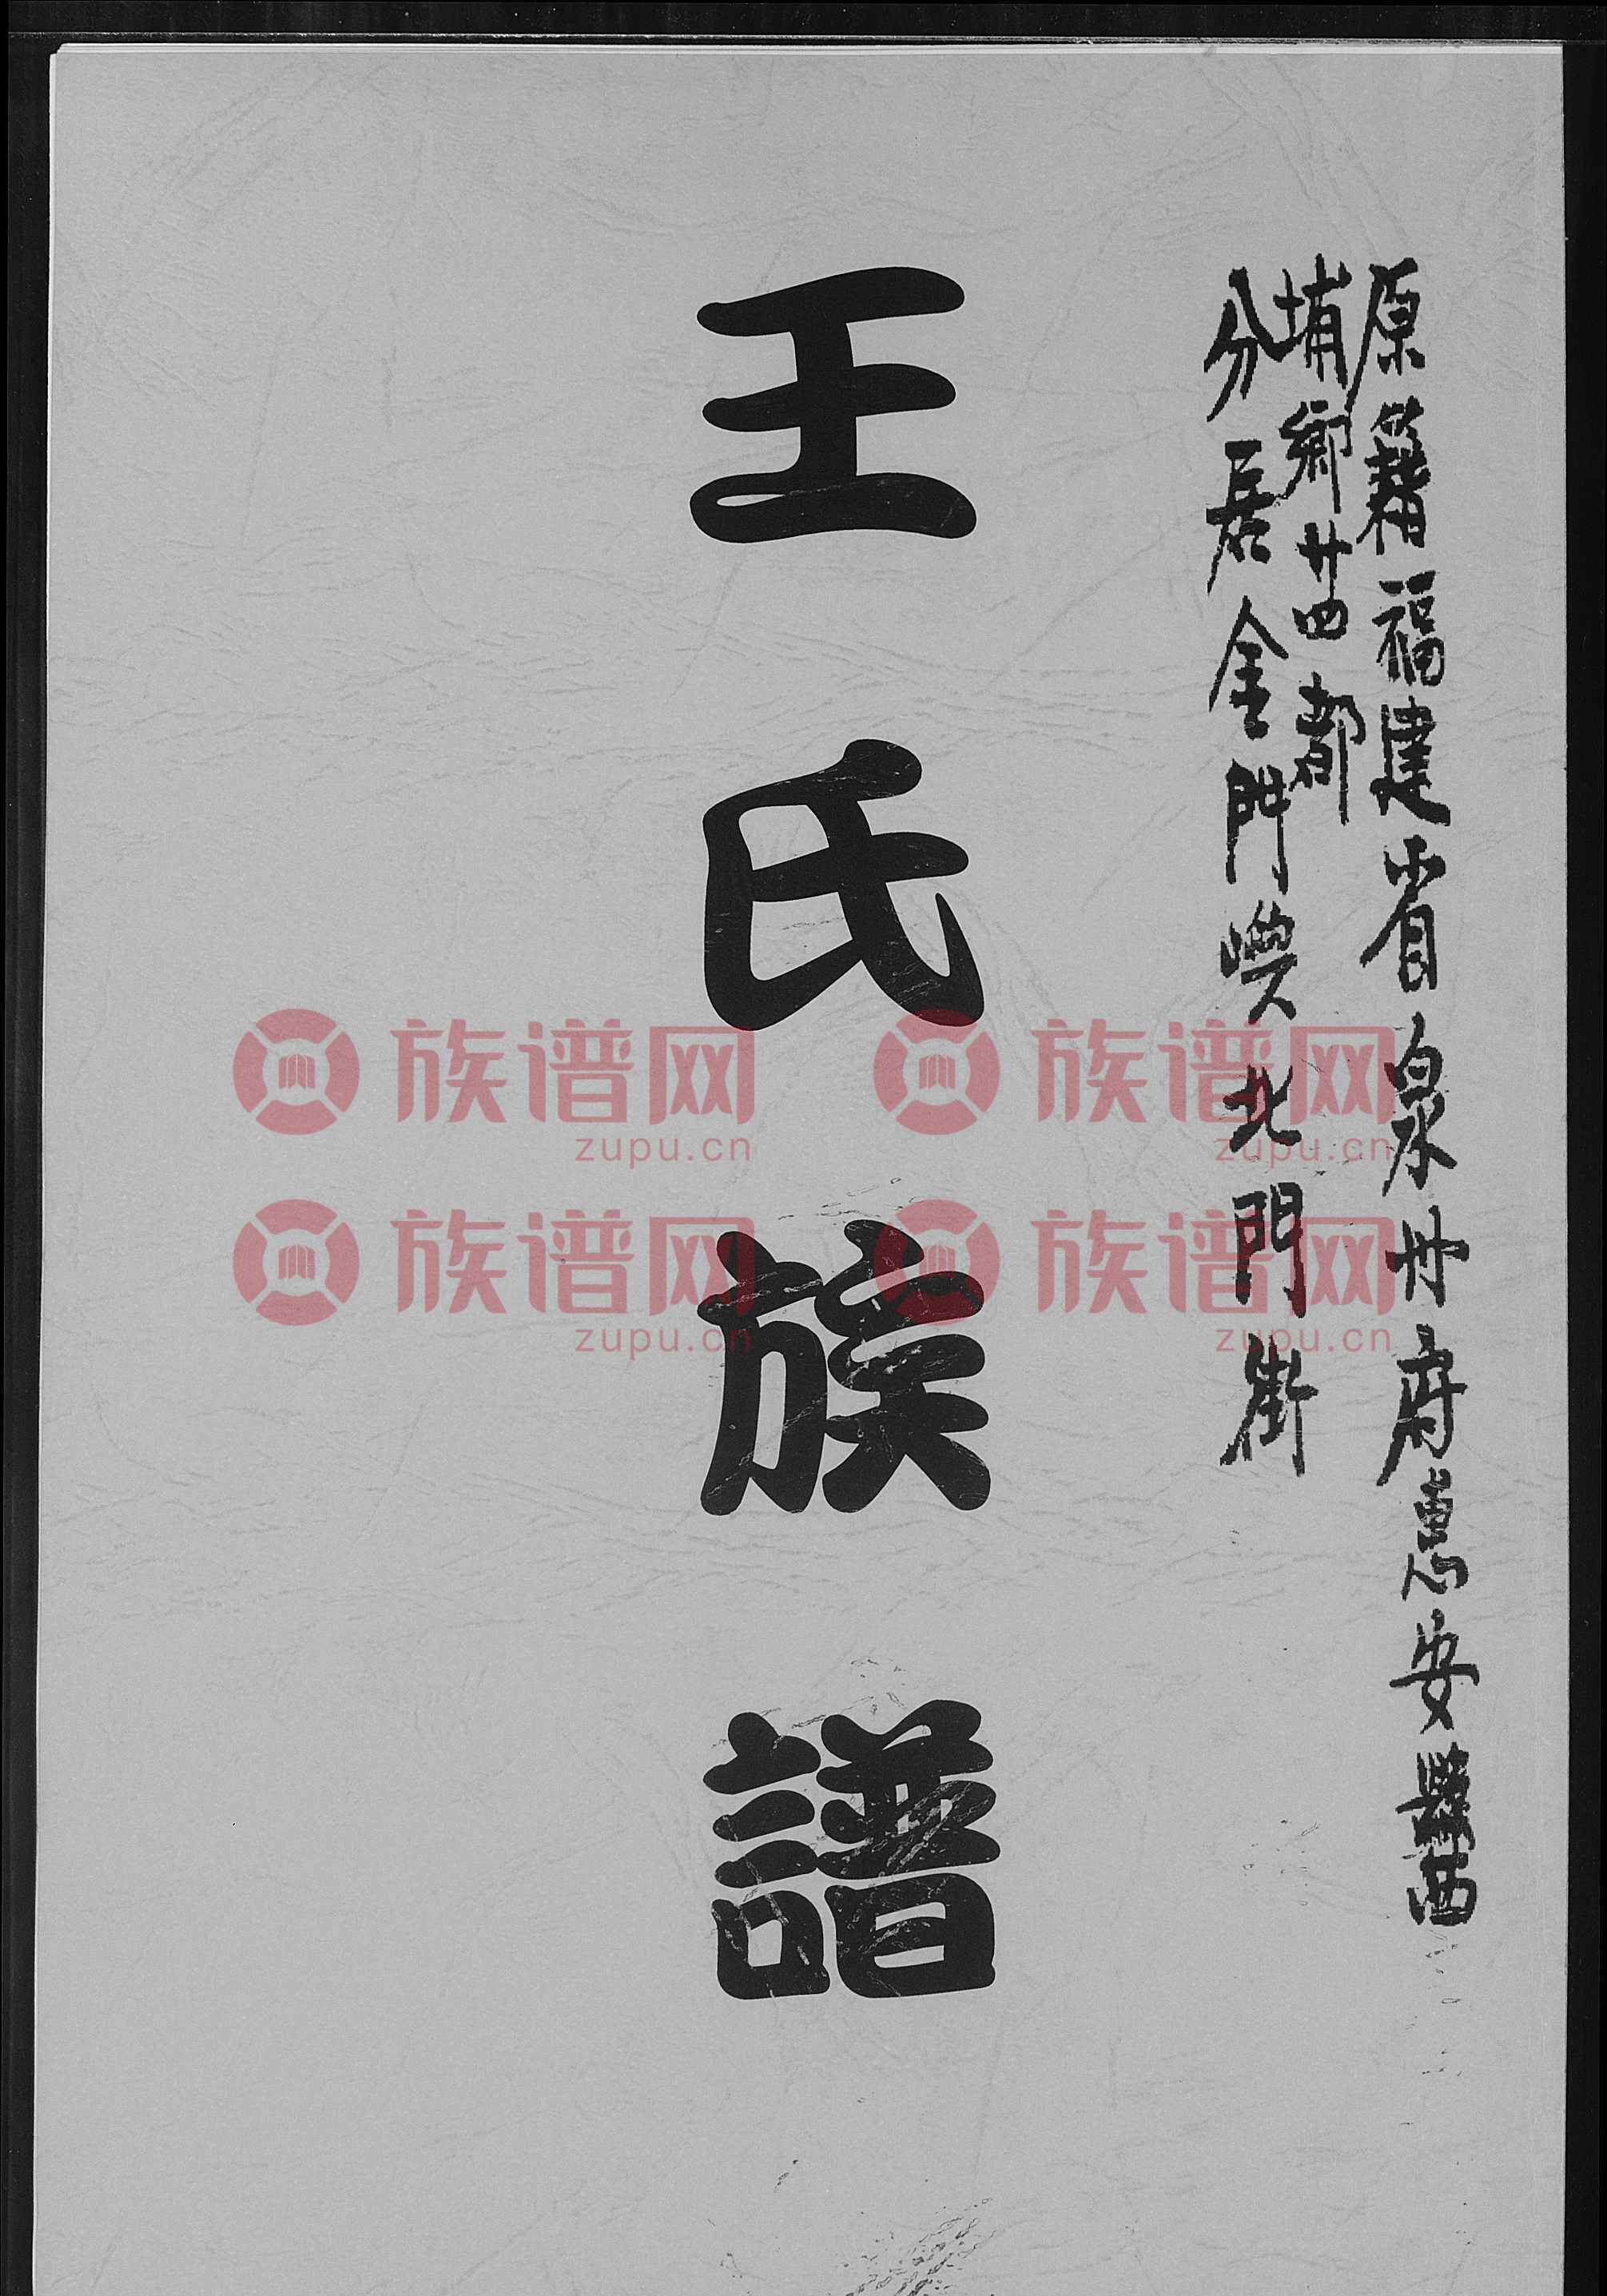 原籍福建省泉州府惠安縣西
埔鄉廿四都
分居金門㠘北門街
王氏族譜
族谱网 族谱网
zupu.cn zupu.cn
族谱网 族谱网
zupu.cn zupu.cn